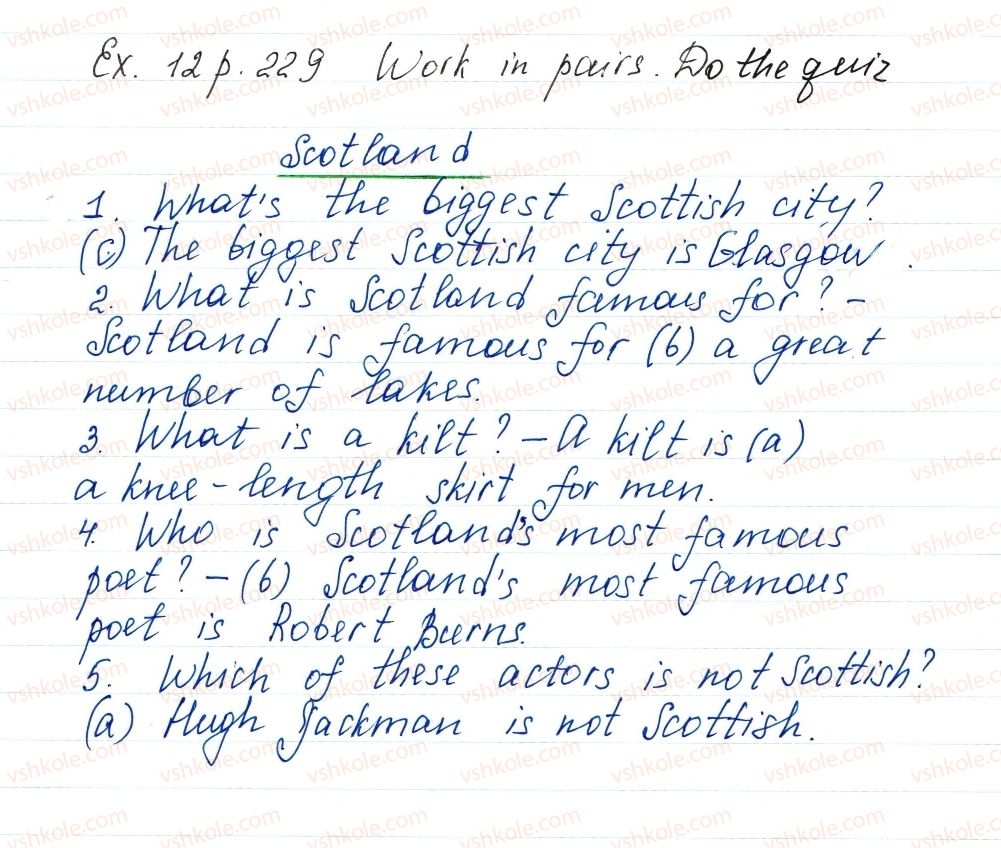 Ex. 12 p. 229 Work in pairs. Do the quiz
Scotland
1. What's the biggest Scottish city?
(c) The biggest Scottish city is Glasgow.
2. What is Scotland famous for? –
Scotland is famous for (b) a great
number of lakes.
3. What is a kilt? – A kilt is (a)
a knee-length skirt for men.
4. Who is Scotland's most famous
poet? – (b) Scotland's most famous
poet is Robert Burns.
5. Which of these actors is not Scottish?
(a) Hugh Jackman is not Scottish.